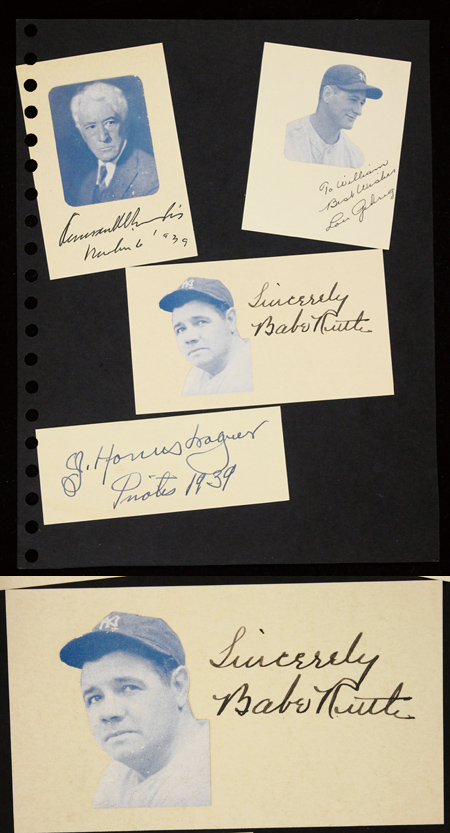 Kenesaw M Landis
March 6 1939
To William
Best Wishes
Lou Gehrig
Sincerely
Babe Ruth
J. Honus Wagner
Pirates 1939
NY
Sincerely
Babe Ruth